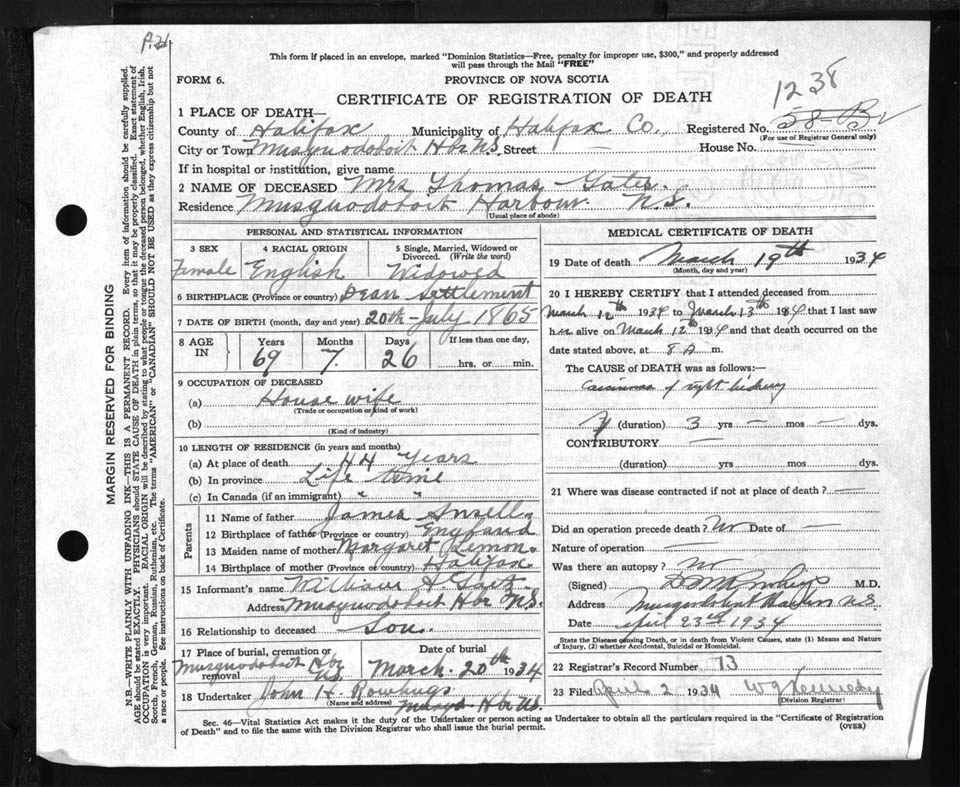 This form if placed in an envelope, marked "Dominion Statistics—Free, penalty for improper use, $300," and properly addressed
will pass through the Mail "FREE"
FORM 6.
PROVINCE OF NOVA SCOTIA
CERTIFICATE OF REGISTRATION OF DEATH
1238
1 PLACE OF DEATH—
County of Halifax Municipality of Halifax Co., Registered No.
(For use of Registrar General only)
City or Town Musquodoboit Hbr N.S. Street — House No.
If in hospital or institution, give name
2 NAME OF DECEASED Mrs Thomas Gates.
Residence Musquodoboit Harbour N.S.
(Usual place of abode)
PERSONAL AND STATISTICAL INFORMATION
3 SEX Female
4 RACIAL ORIGIN English
5 Single, Married, Widowed or Divorced. (Write the word) Widowed
6 BIRTHPLACE (Province or country) Dean Settlement
7 DATE OF BIRTH (month, day and year) 20th July 1865
8 AGE IN Years 69 Months 7. Days 26 If less than one day, hrs. or min.
9 OCCUPATION OF DECEASED
(a) House wife
(Trade or occupation or kind of work)
(b)
(Kind of industry)
10 LENGTH OF RESIDENCE (in years and months)
(a) At place of death 44 Years
(b) In province Life time
(c) In Canada (if an immigrant) " "
Parents
11 Name of father James
12 Birthplace of father (Province or country) England
13 Maiden name of mother Margaret
14 Birthplace of mother (Province or country) Halifax
15 Informant's name William
Address Musquodoboit Hbr N.S.
16 Relationship to deceased Son.
17 Place of burial, cremation or removal Musquodoboit Hbr N.S.
Date of burial March 20th 1934
18 Undertaker John H.
(Name and address) Hbr N.S.
MEDICAL CERTIFICATE OF DEATH
19 Date of death March 19th 1934
(Month, day and year)
20 I HEREBY CERTIFY that I attended deceased from
March 12th 1934 to March 13th 1934 that I last saw
her alive on March 12th 1934 and that death occurred on the
date stated above, at 8 A m.
The CAUSE OF DEATH was as follows:—
Carcinoma of right kidney
(duration) 3 yrs — mos — dys.
CONTRIBUTORY —
(duration) yrs mos dys.
21 Where was disease contracted if not at place of death? —
Did an operation precede death? No Date of —
Nature of operation —
Was there an autopsy? No
(Signed) M.D.
Address Musquodoboit Harbour N.S.
Date April 23rd 1934
State the Disease causing Death, or in death from Violent Causes, state (1) Means and Nature
of Injury, (2) whether Accidental, Suicidal or Homicidal.
22 Registrar's Record Number 13
23 Filed April 2 1934 W G Kennedy
(Division Registrar)
Sec. 46—Vital Statistics Act makes it the duty of the Undertaker or person acting as Undertaker to obtain all the particulars required in the "Certificate of Registration
of Death" and to file the same with the Division Registrar who shall issue the burial permit.
(OVER)
MARGIN RESERVED FOR BINDING
N.B.—WRITE PLAINLY WITH UNFADING INK—THIS IS A PERMANENT RECORD. Every item of information should be carefully supplied.
AGE should be stated EXACTLY. PHYSICIANS should STATE CAUSE OF DEATH in plain terms, so that it may be properly classified. Exact statement of
OCCUPATION is very important. RACIAL ORIGIN will be described by stating to what people or tongue the deceased person belonged, whether English, Irish,
Scotch, French, German, Russian, Ruthenian, etc. The terms "AMERICAN" or "CANADIAN" SHOULD NOT BE USED as they express citizenship but not
a race or people. See instructions on back of Certificate.